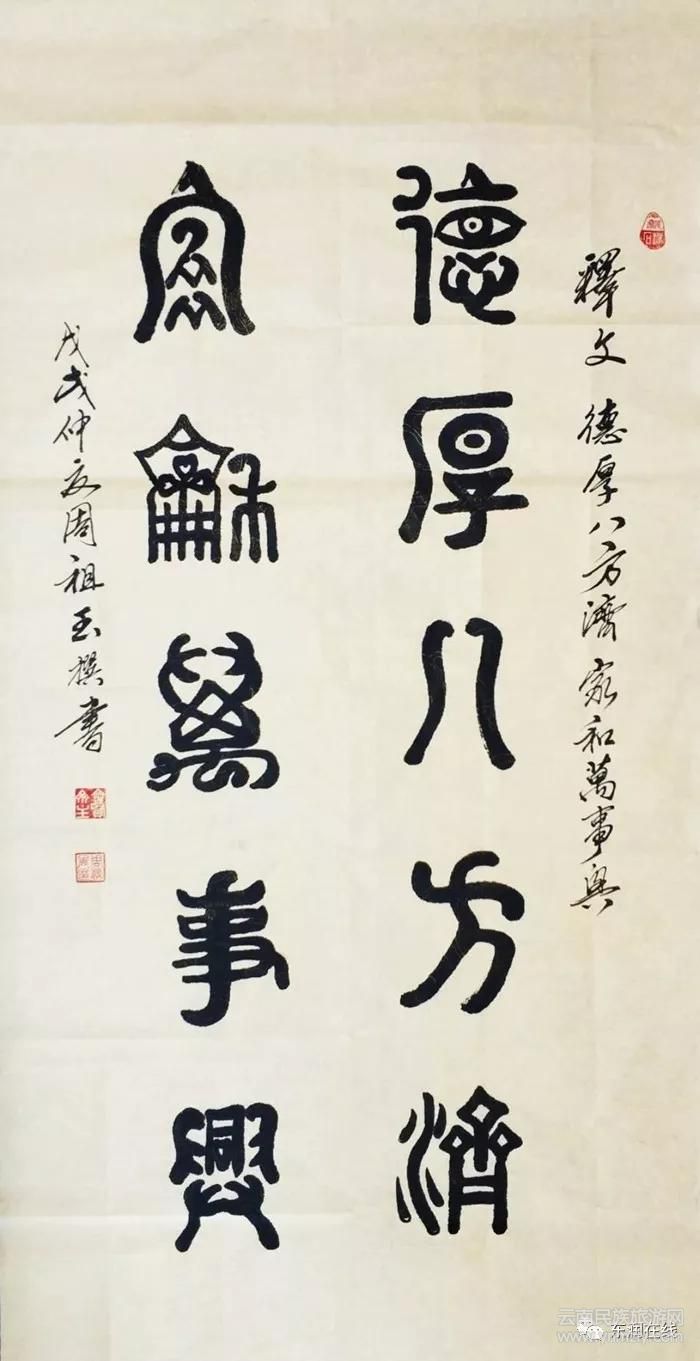 釋文 德厚八方濟 家和萬事興
德厚八方濟
家龢萬事興
戊戌仲夏周祖玉撰書
云南民族旅游网
东润在线